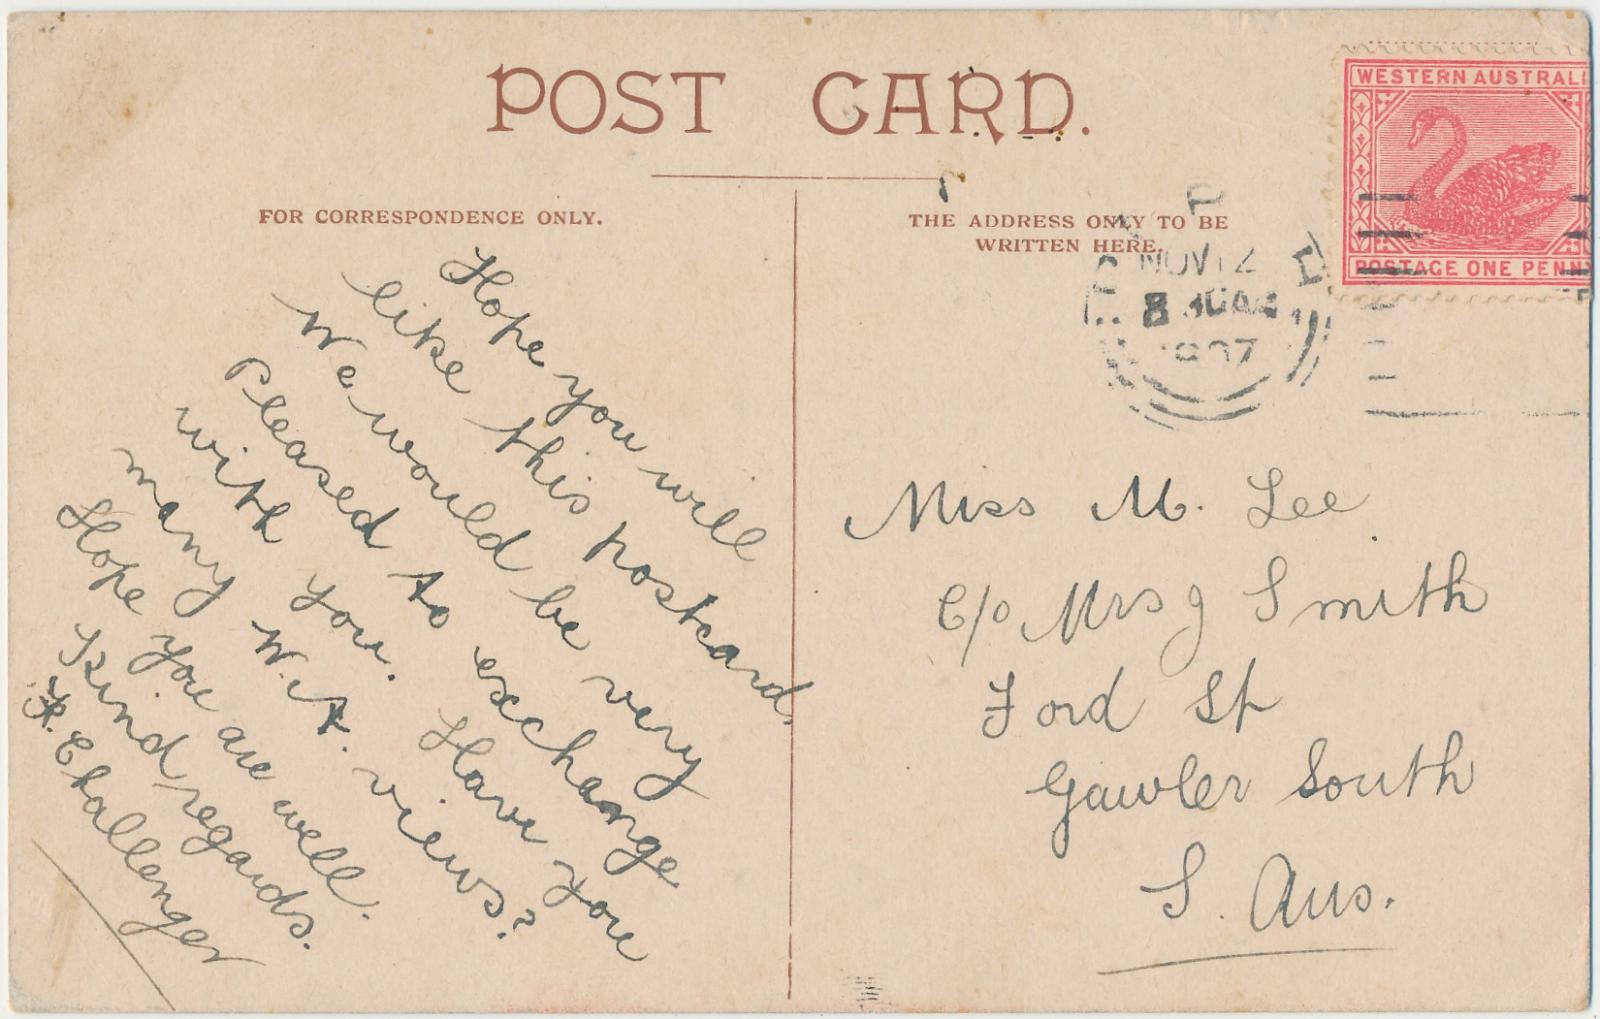 POST CARD.
FOR CORRESPONDENCE ONLY.
Hope you will
like this postcard.
We would be very
Pleased to exchange
with you. Have you
many W.A. views?
Hope you are well.
Kind regards.
Challenger
THE ADDRESS ONLY TO BE
WRITTEN HERE.
WESTERN AUSTRALI
POSTAGE ONE PENNY
NOV 12
8 30AM
1907
Miss M. Lee
C/o Mrs J Smith
Ford St
Gawler South
S. Aus.